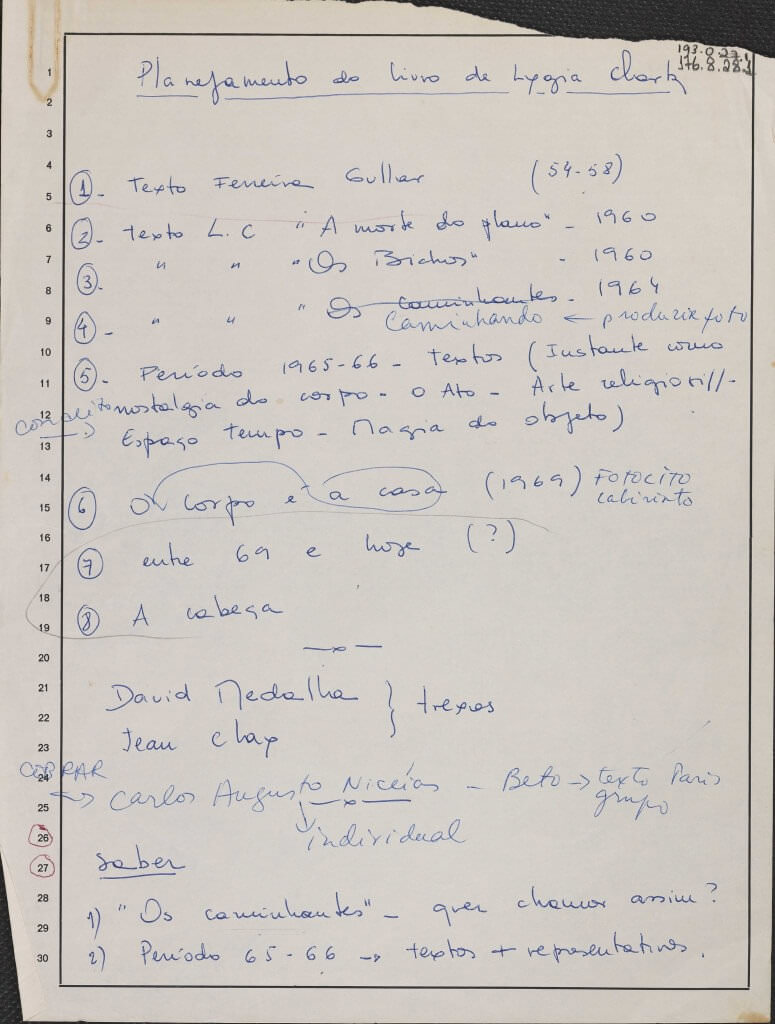 193.0.27,
176.8.28.1
Planejamento do livro de Lygia Clark
1 - Texto Ferreira Gullar (54-58)
2 - Texto L.C " A morte do plano" - 1960
3 - " " "Os Bichos" - 1960
4 - " " "Os caminhantes - 1964
Caminhando ← produzir foto
5 - Período 1965-66 - textos (Instante como
nostalgia do corpo - o Ato - Arte
Espaço tempo - Magia do objeto)
6 O corpo e a casa (1969) FOTOCITO
Labirinto
7 entre 69 e hoje (?)
8 A cabeça
David Medalha } trexos
Jean Clay
COBRAR
Carlos Augusto Niceias - Beto → texto Paris
grupo
individual
Saber
1) "Os caminhantes" - quer chamar assim?
2) Período 65-66 → textos + representativos.
1
2
3
4
5
6
7
8
9
10
11
12
13
14
15
16
17
18
19
20
21
22
23
24
25
26
27
28
29
30